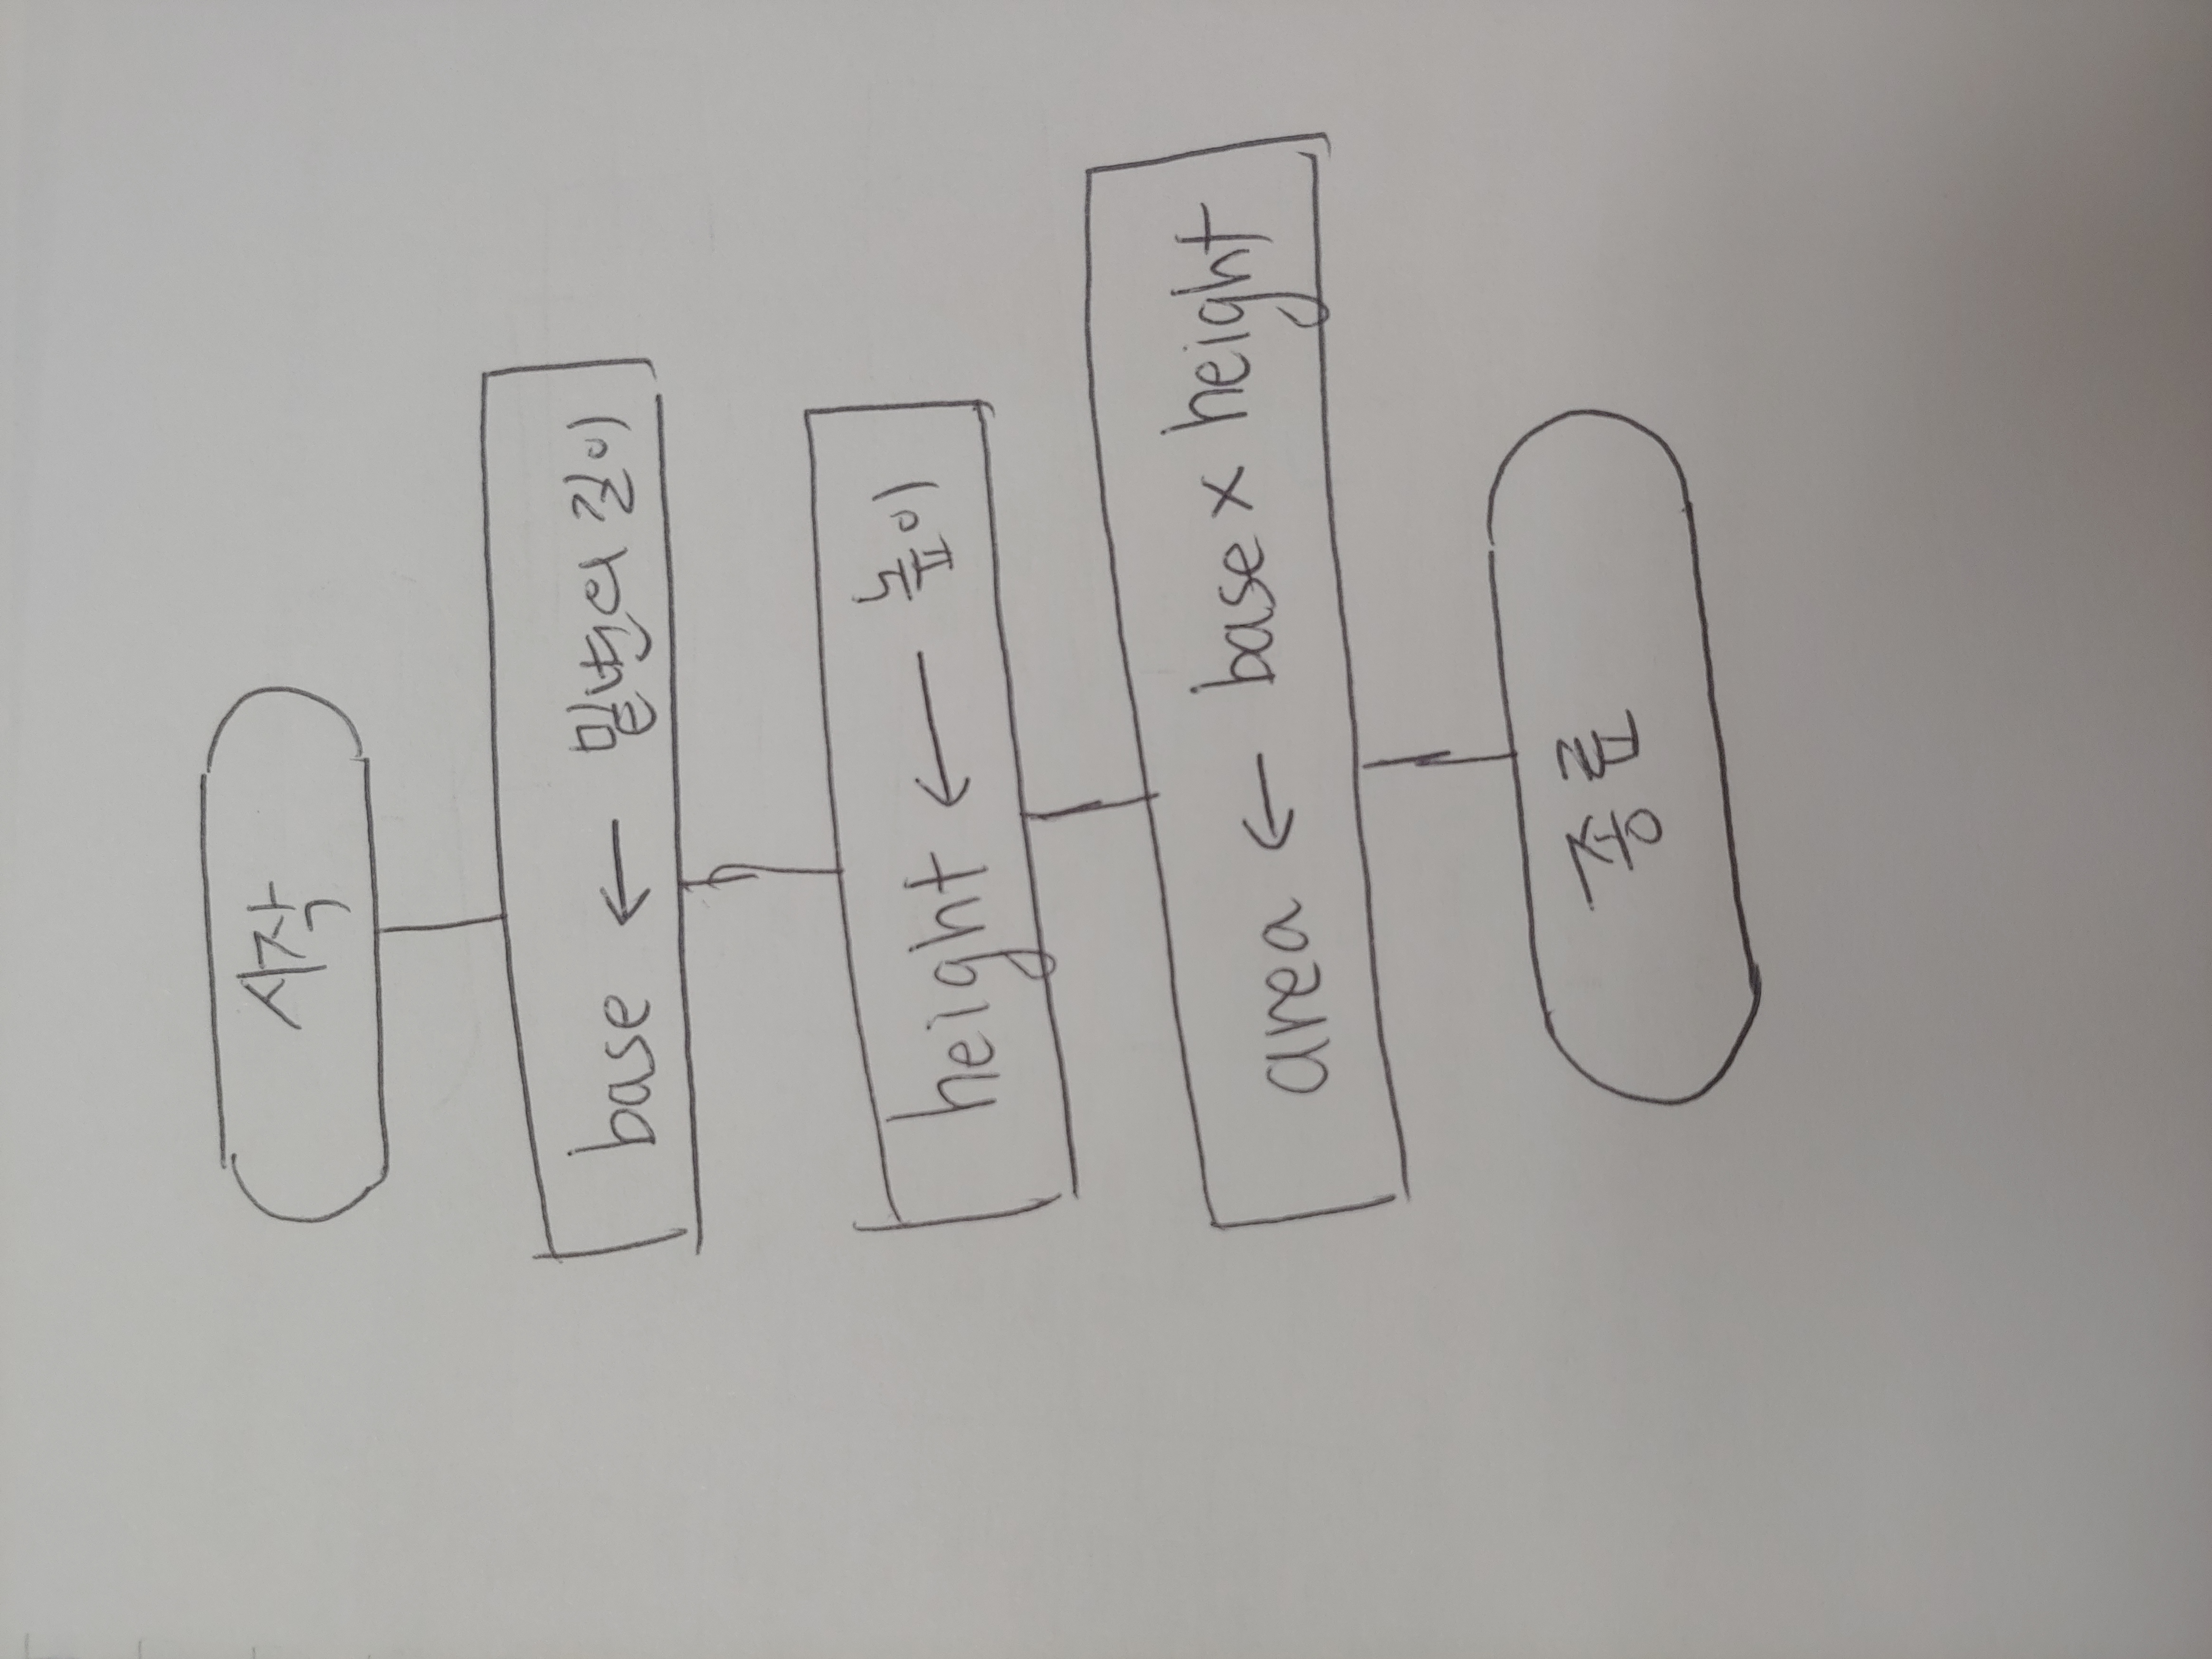 시작
base ← 밑변의 길이
height ← 높이
area ← base × height
종료